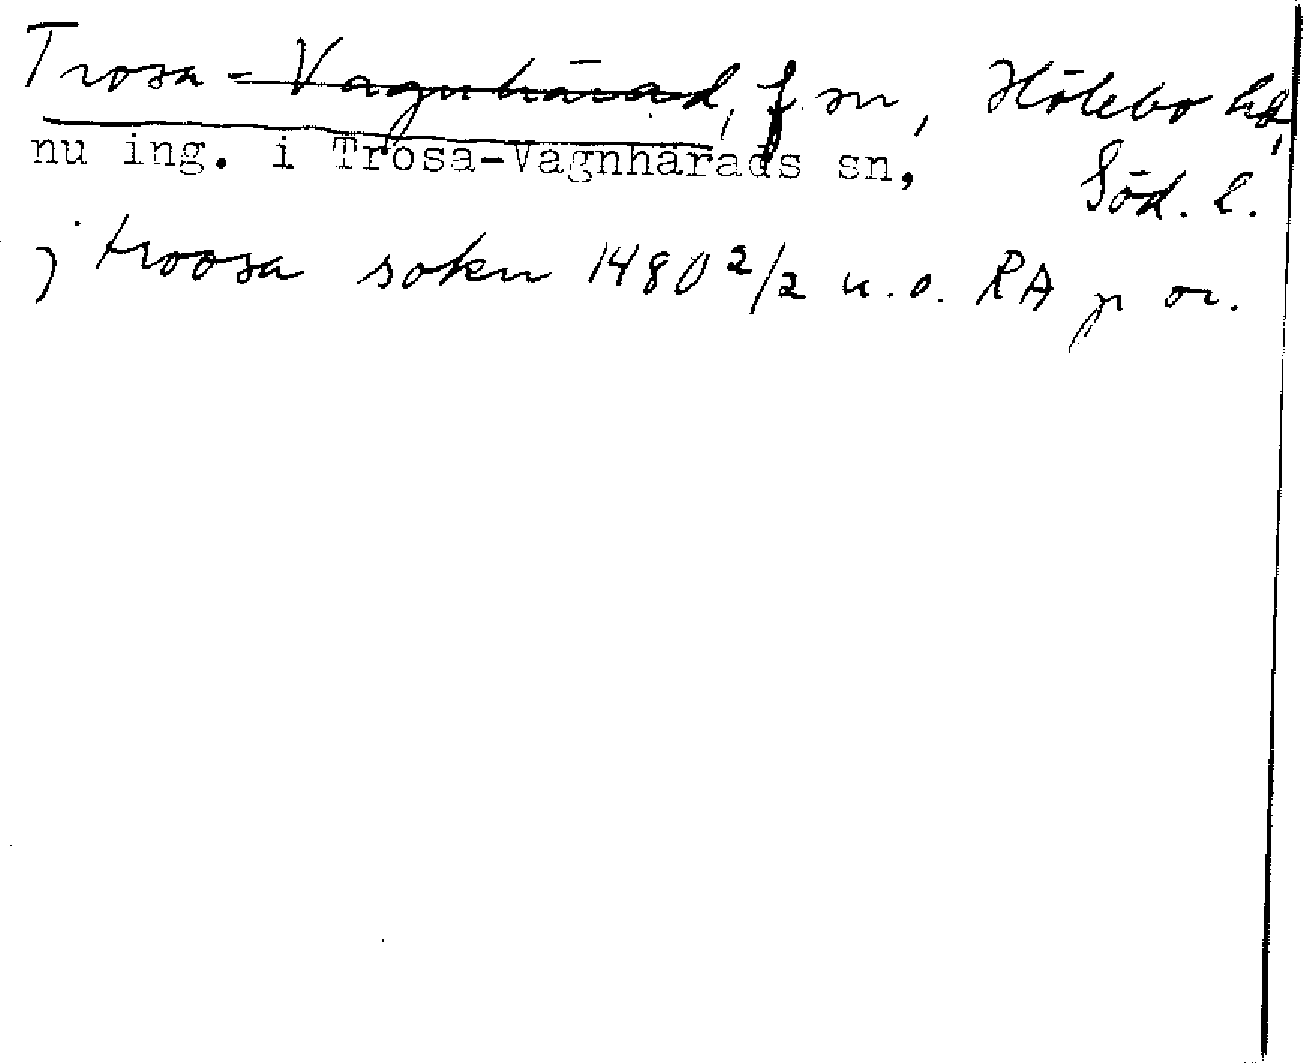 Trosa-Vagnhärad, f. sn, Hölebo hd,
nu ing. i Trosa-Vagnhärads sn, Söd. l.
j troosa sokn 1480 2/2 u.o. RA p or.